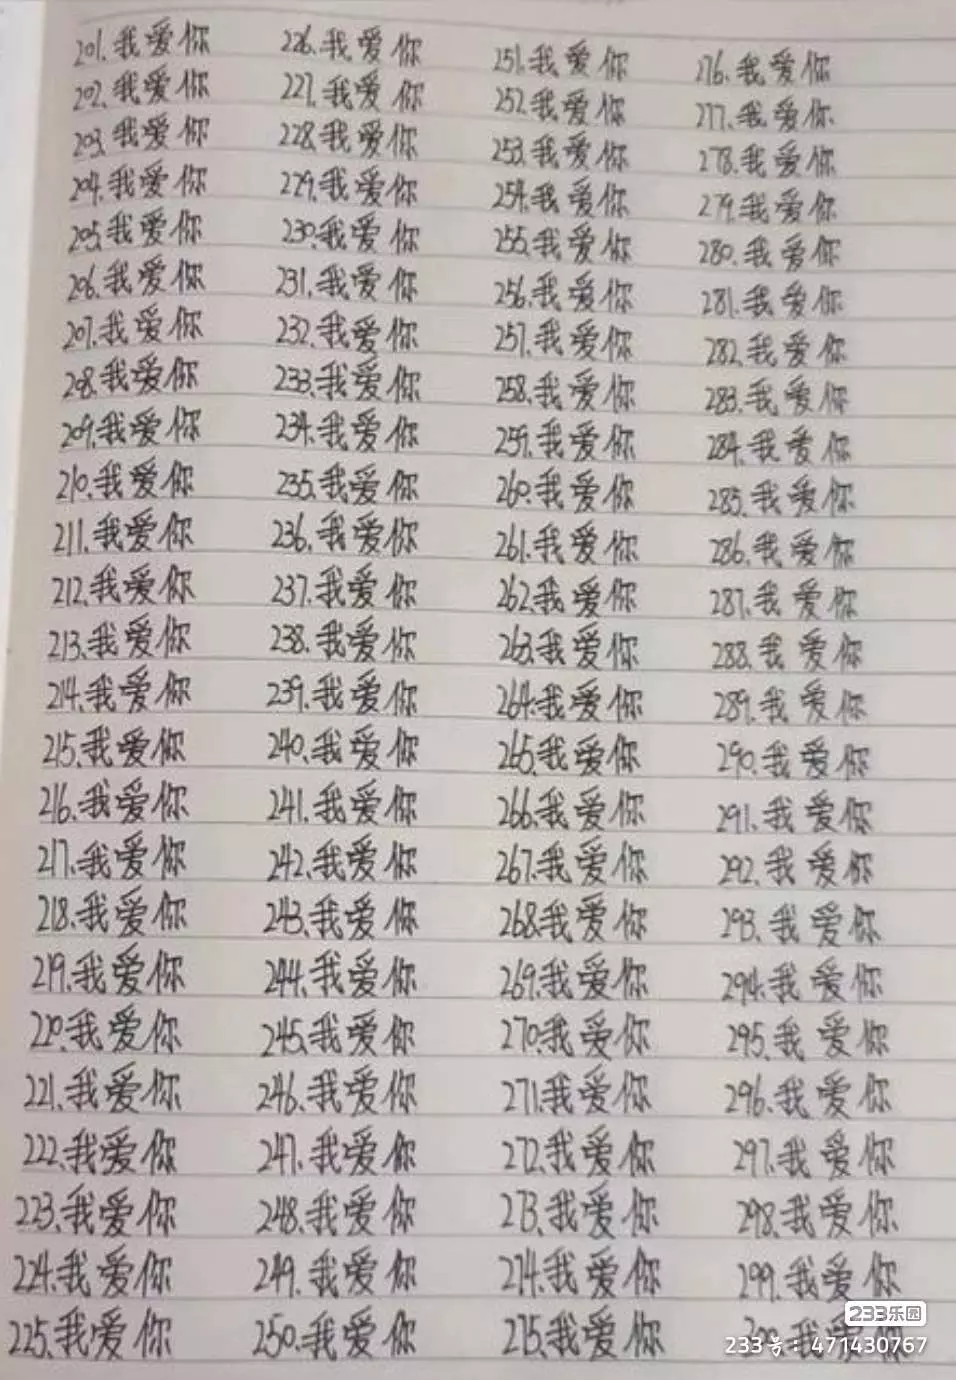 201.我爱你
202.我爱你
203.我爱你
204.我爱你
205.我爱你
206.我爱你
207.我爱你
208.我爱你
209.我爱你
210.我爱你
211.我爱你
212.我爱你
213.我爱你
214.我爱你
215.我爱你
216.我爱你
217.我爱你
218.我爱你
219.我爱你
220.我爱你
221.我爱你
222.我爱你
223.我爱你
224.我爱你
225.我爱你
226.我爱你
227.我爱你
228.我爱你
229.我爱你
230.我爱你
231.我爱你
232.我爱你
233.我爱你
234.我爱你
235.我爱你
236.我爱你
237.我爱你
238.我爱你
239.我爱你
240.我爱你
241.我爱你
242.我爱你
243.我爱你
244.我爱你
245.我爱你
246.我爱你
247.我爱你
248.我爱你
249.我爱你
250.我爱你
251.我爱你
252.我爱你
253.我爱你
254.我爱你
255.我爱你
256.我爱你
257.我爱你
258.我爱你
259.我爱你
260.我爱你
261.我爱你
262.我爱你
263.我爱你
264.我爱你
265.我爱你
266.我爱你
267.我爱你
268.我爱你
269.我爱你
270.我爱你
271.我爱你
272.我爱你
273.我爱你
274.我爱你
275.我爱你
276.我爱你
277.我爱你
278.我爱你
279.我爱你
280.我爱你
281.我爱你
282.我爱你
283.我爱你
284.我爱你
285.我爱你
286.我爱你
287.我爱你
288.我爱你
289.我爱你
290.我爱你
291.我爱你
292.我爱你
293.我爱你
294.我爱你
295.我爱你
296.我爱你
297.我爱你
298.我爱你
299.我爱你
300.我爱你
233乐园
233号:471430767